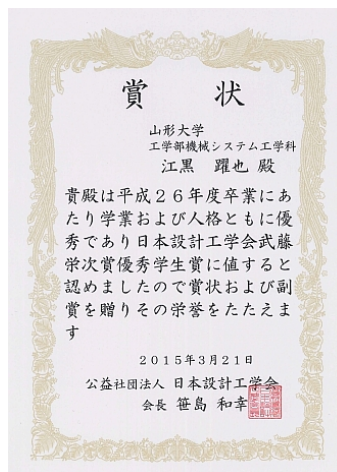 賞状
山形大学
工学部機械システム工学科
江黒 躍也 殿
貴殿は平成26年度卒業にあ
たり学業および人格ともに優
秀であり日本設計工学会武藤
栄次賞優秀学生賞に値すると
認めましたので賞状および副
賞を贈りその栄誉をたたえま
す
2015年3月21日
公益社団法人 日本設計工学会
会長 笹島 和幸